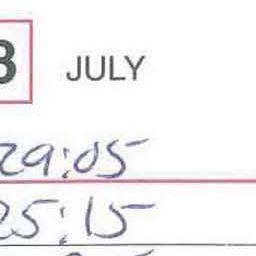 3 JULY
29:05
25:15